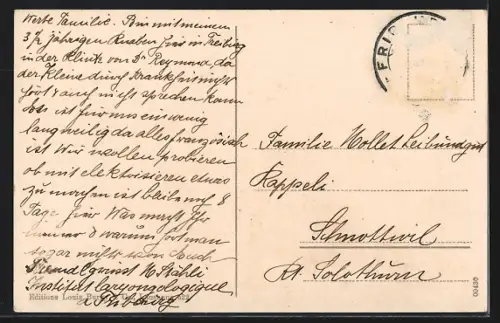 Werte Familie. Bin mit meinem
3½ jährigen Knaben hier in Freiburg
in der Klinik von Dr Reymond, da
der Kleine durch Krankheit nicht
hört & auch nicht sprechen kann.
Es ist für mich ein wenig
langweilig da alles französisch
ist. Wir wollen probieren
ob mit elektrisieren etwas
zu machen ist bleibe noch 8
Tage hier Was macht Ihr
immer & warum hört man
so gar nichts von Euch
Freundl. Gruss M Stähli
Institut laryngologique
à Fribourg
Editions Louis
FRIB
Familie Mollet Leibundgut
Kappeli
Schnottwil
Kt. Solothurn